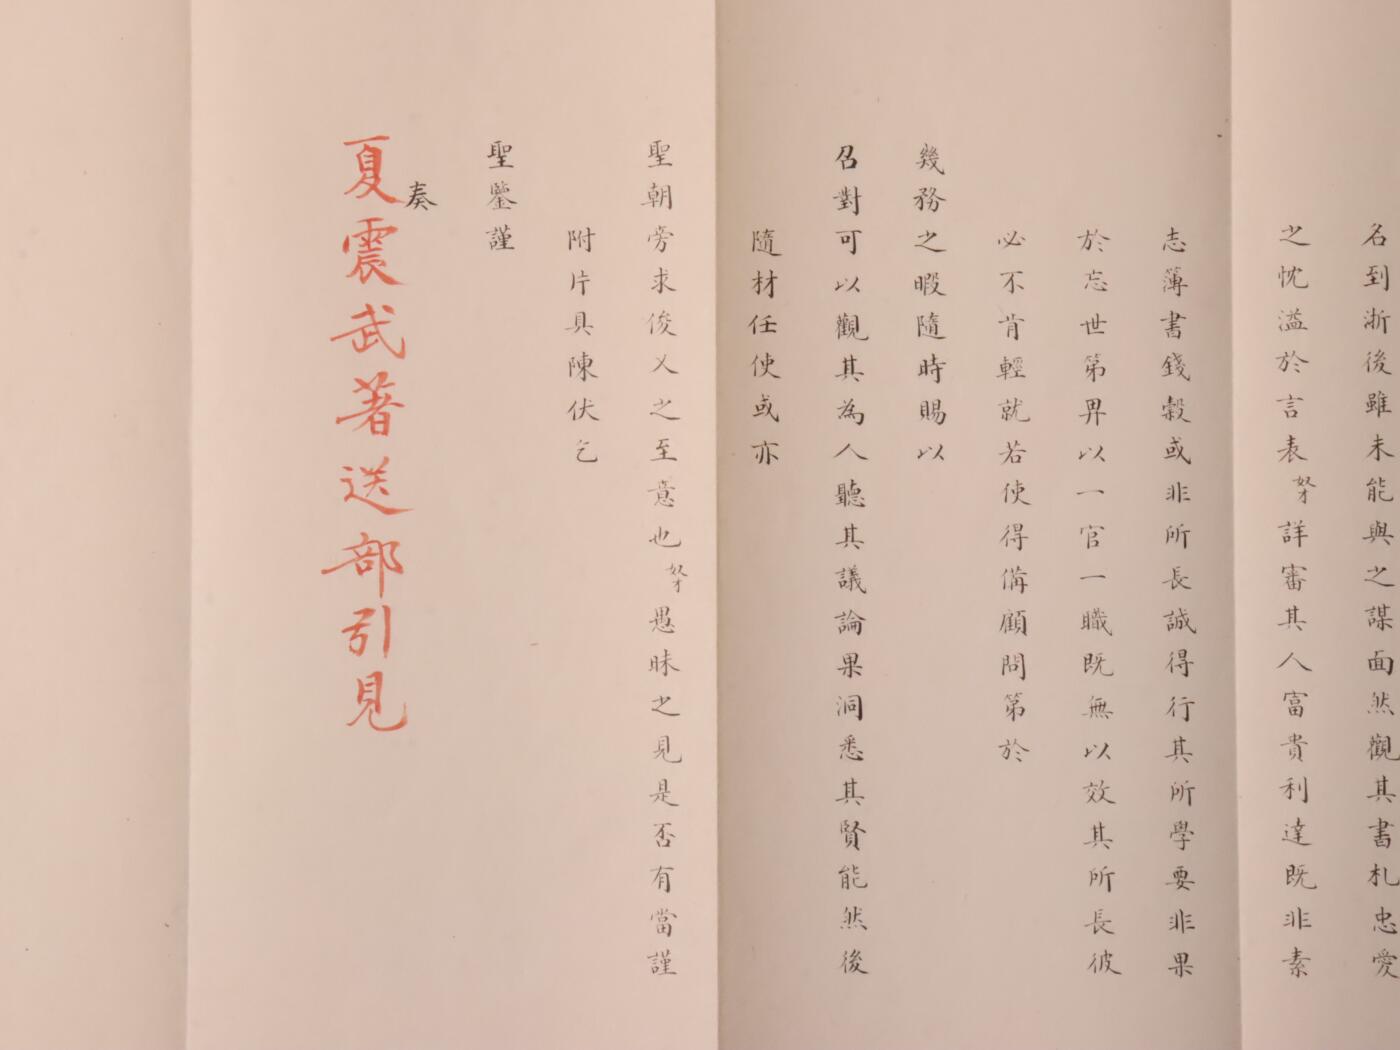 名到浙後雖未能與之謀面然觀其書札忠愛
之忱溢於言表奴才詳審其人富貴利達既非素
志薄書錢穀或非所長誠得行其所學要非果
於忘世第畀以一官一職既無以效其所長彼
必不肯輕就若使得備顧問第於
幾務之暇隨時賜以
召對可以觀其為人聽其議論果洞悉其賢能然後
隨材任使或亦
聖朝旁求俊乂之至意也奴才愚昧之見是否有當謹
附片具陳伏乞
聖鑒謹
奏
夏震武著送部引見